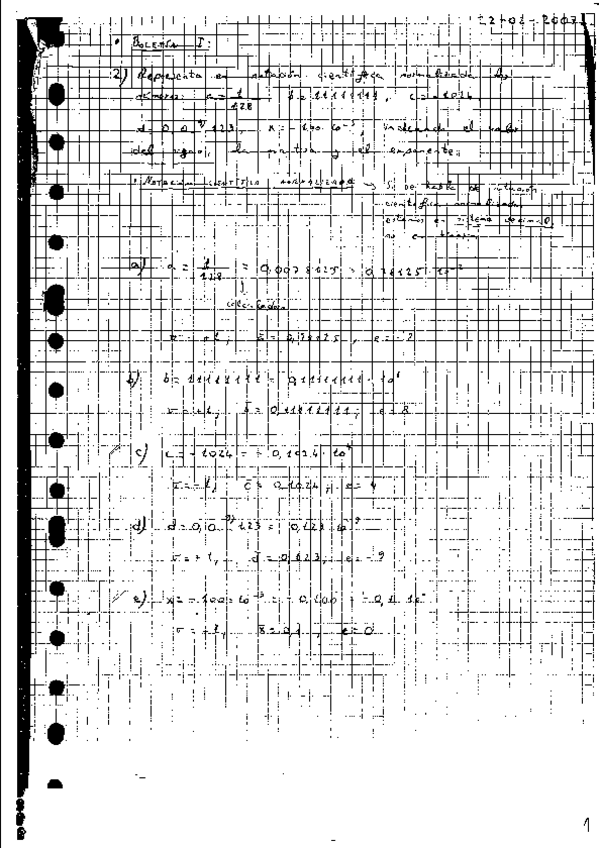 22-02-2007
• BOLETÍN I:
2) Representa en notación científica normalizada los
números: a = 1/128, b = 11111111, c = -1024,
d = 0,0...⁹⁾ 123, x = -100·10⁻³, indicando el valor
del signo, la mantisa y el exponente.
• NOTACIÓN CIENTÍFICA NORMALIZADA → Si se habla de notación
científica normalizada
estamos en sistema decimal,
no en binario.
a) a = 1/128 = 0,0078125 = 0,78125 · 10⁻²
↓
calculadora
σ = +1, ā = 0,78125, e = -2
b) b = 11111111 = 0,11111111 · 10⁸
σ = +1, b̄ = 0,11111111, e = 8
c) c = -1024 = -0,1024 · 10⁴
σ = -1, c̄ = 0,1024, e = 4
d) d = 0,0...⁹⁾ 123 = 0,123 · 10⁻⁹
σ = +1, d̄ = 0,123, e = -9
e) x = -100·10⁻³ = -0,100 = -0,1 · 10⁰
σ = -1, x̄ = 0,1, e = 0
1